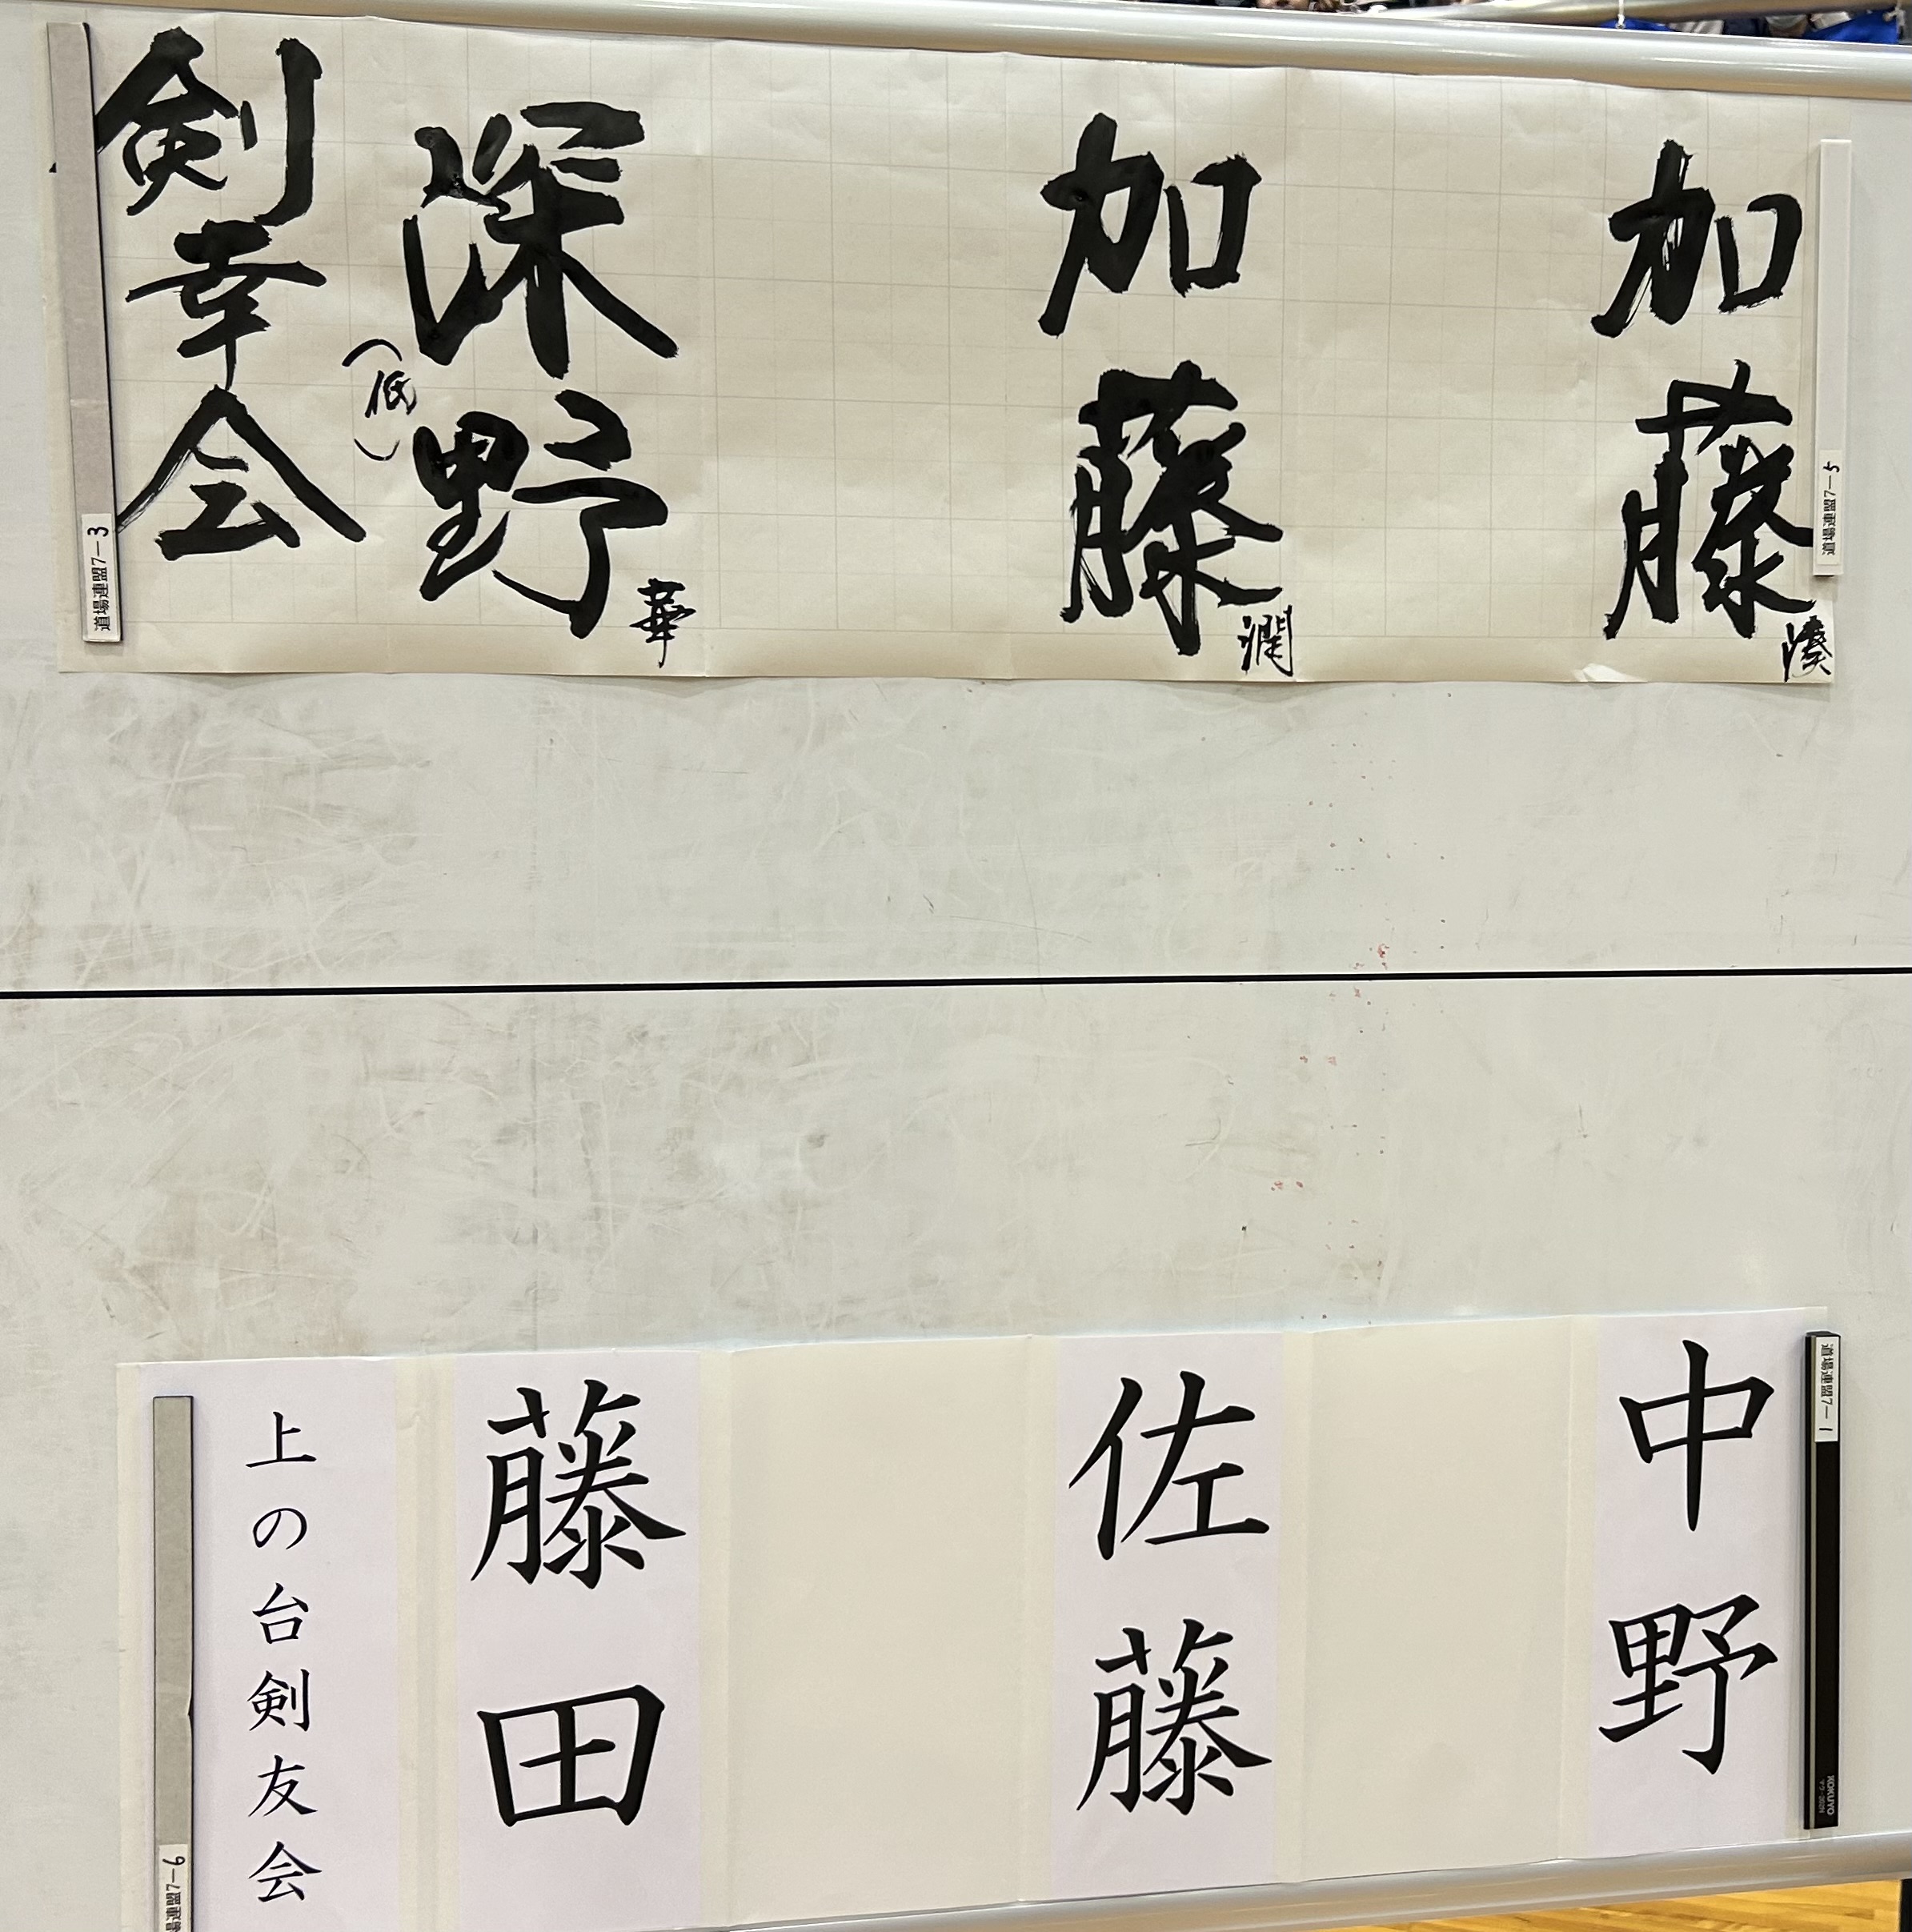 加藤
湊
加藤
潤
深野
華
(低)
剣幸会
道場連盟7-5
道場連盟7-3
中野
佐藤
藤田
上の台剣友会
道場連盟7-1
道場連盟7-6
KOKUYO